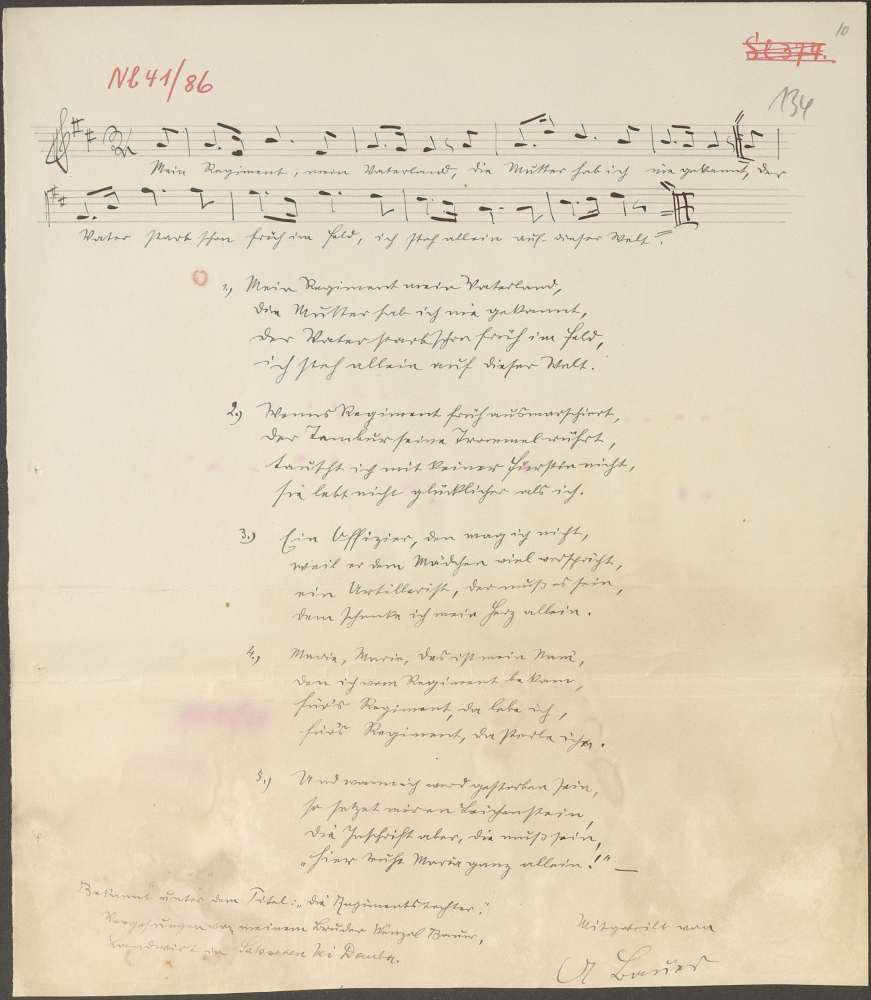 10
Sl 374.
Nl 41/86
134
Mein Regiment, mein Vaterland, die Mutter hab ich nie gekannt, der
Vater starb schon früh im Feld, ich steh allein auf dieser Welt.
1., Mein Regiment mein Vaterland,
die Mutter hab ich nie gekannt,
der Vater starb schon früh im Feld,
ich steh allein auf dieser Welt.
2.) Wenns Regiment früh ausmarschiert,
der Tambur seine Trommel rührt,
tauscht ich mit keiner Fürstin nicht,
sie lebt nicht glücklicher als ich.
3.) Ein Offizier, den mag ich nicht,
weil er dem Mädchen viel verspricht,
ein Artillerist, der muß es sein,
dem schenke ich mein Herz allein.
4., Marie, Marie, das ist mein Nam',
den ich vom Regiment bekam,
fürs Regiment, da lebe ich,
fürs Regiment, da sterbe ich.
5.) Und wenn ich werd gestorben sein,
so setzet mir en Leichenstein,
die Inschrift aber, die muß sein,
„hier ruht Maria ganz allein!" —
Bekannt unter dem Titel: „die Regimentstochter."
Vorgesungen von meinem Bruder Wenzel Bauer,
Landwirt in bei Dauba.
Mitgeteilt von
A Bauer